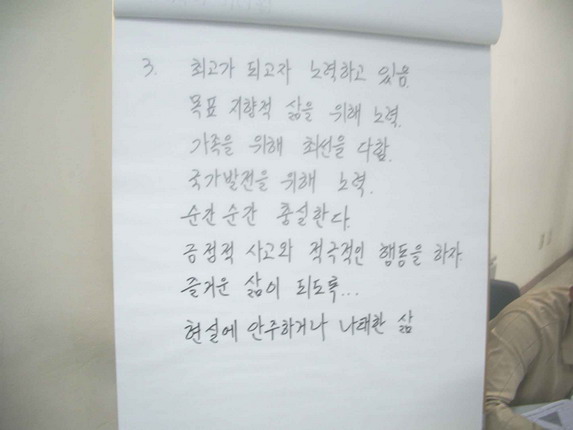 3. 최고가 되고자 노력하고 있음.
목표 지향적 삶을 위해 노력.
가족을 위해 최선을 다함.
국가발전을 위해 노력.
순간순간 충실한다.
긍정적 사고와 적극적인 행동을 하자
즐거운 삶이 되도록...
현실에 안주하거나 나태한 삶